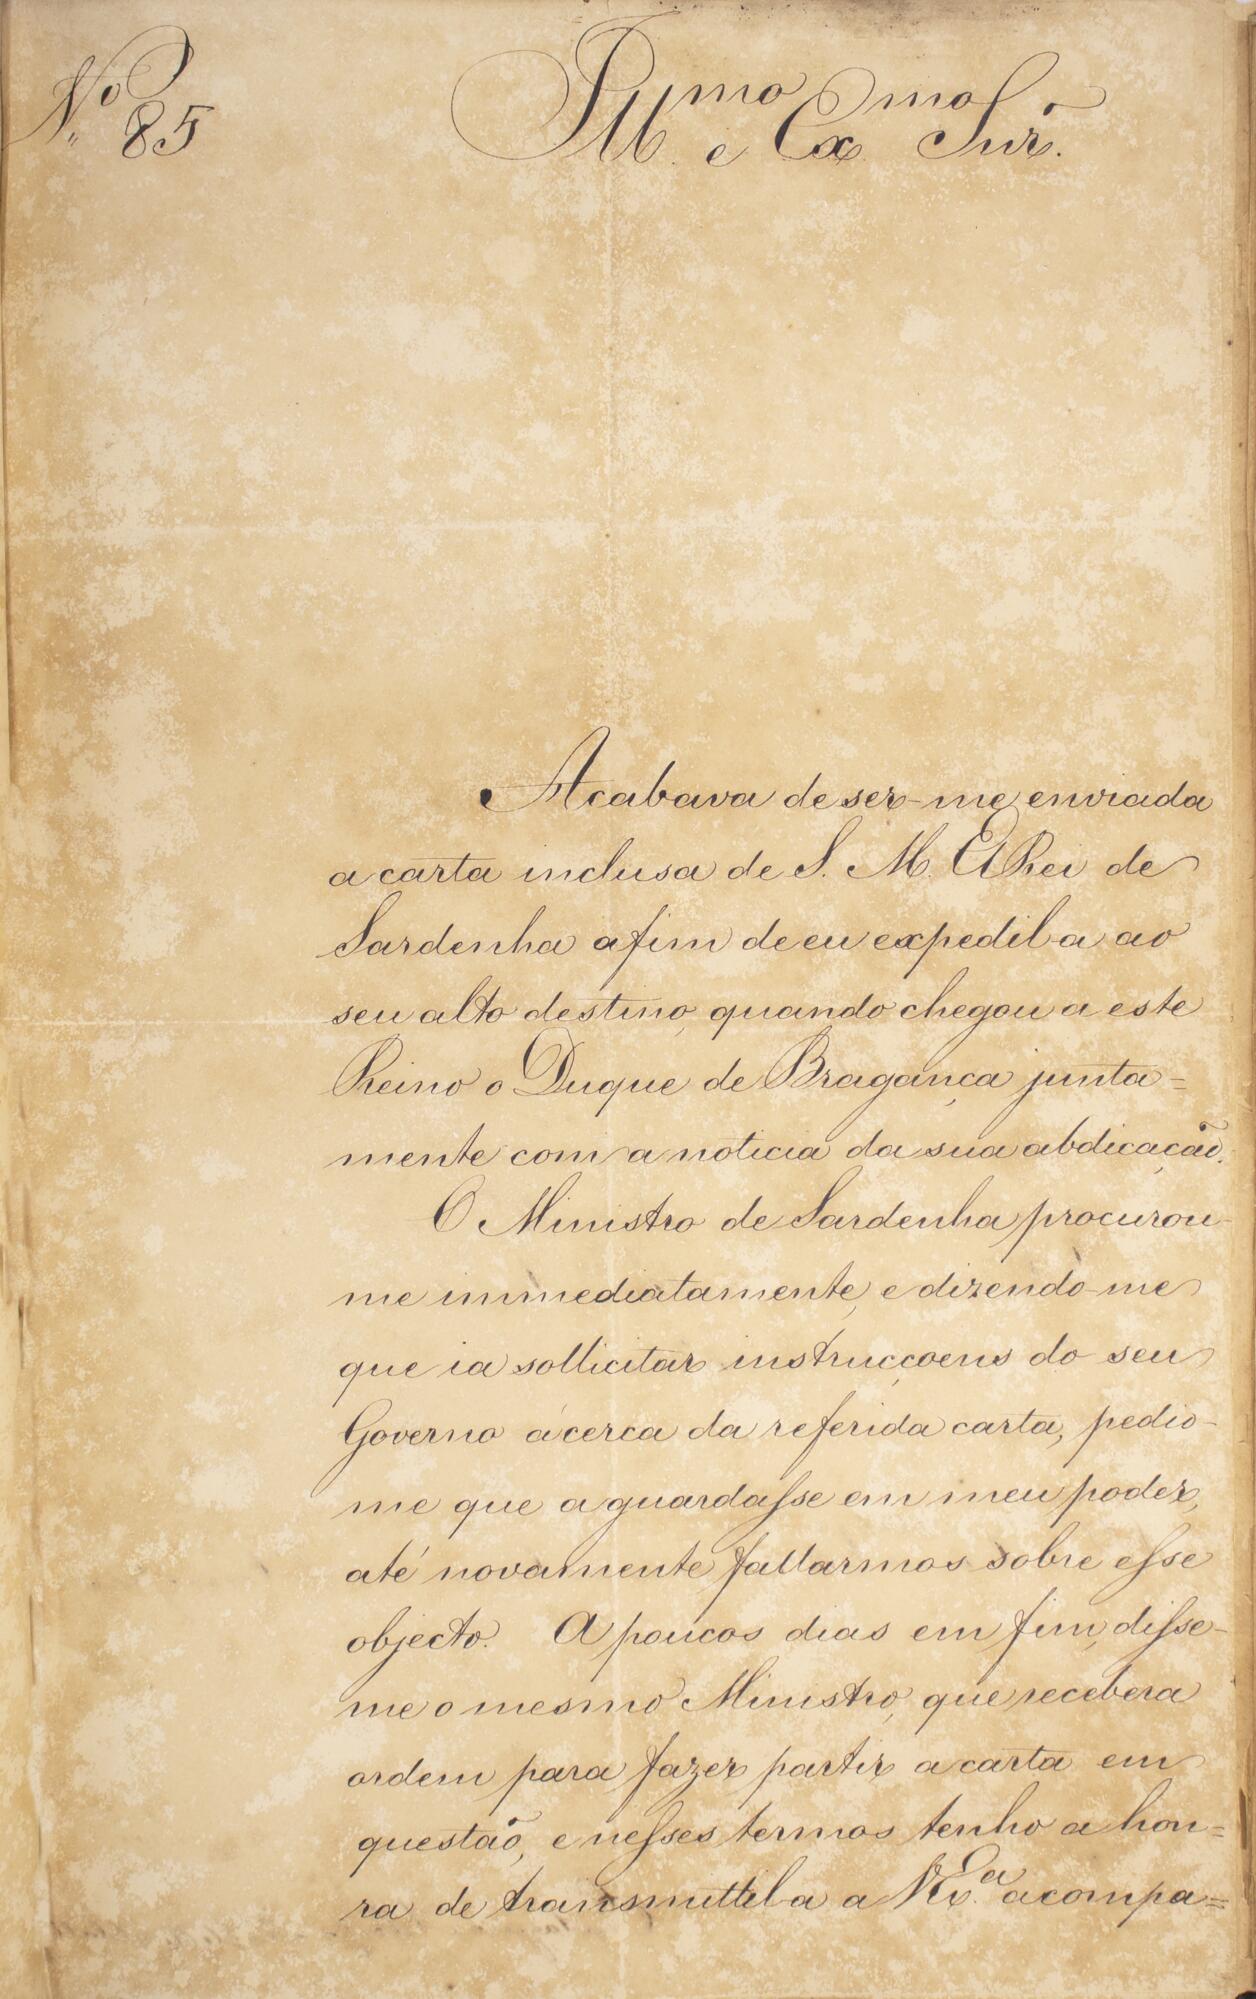 N.º 85
Ill.mo e Ex.mo Snr.
Acabava de ser-me enviada
a carta inclusa de S. M. ElRei de
Sardenha afim de eu expedil-a ao
seu alto destino, quando chegou a este
Reino o Duque de Bragança junta=
mente com a noticia da sua abdicação.
O Ministro de Sardenha procurou-
me immediatamente, e dizendo-me
que ia sollicitar instrucçoens do seu
Governo ácerca da referida carta, pedio-
me que a guardasse em meu poder,
até novamente fallarmos sobre esse
objecto. A poucos dias em fim, disse-
me o mesmo Ministro, que recebera
ordem para fazer partir a carta em
questão, e nesses termos tenho a hon=
ra de transmittil-a a V. Ex.ª acompa=